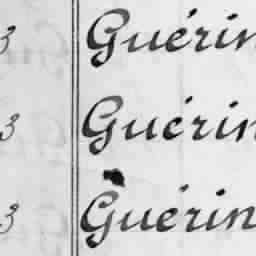 3 Guérin
3 Guérin
3 Guérin